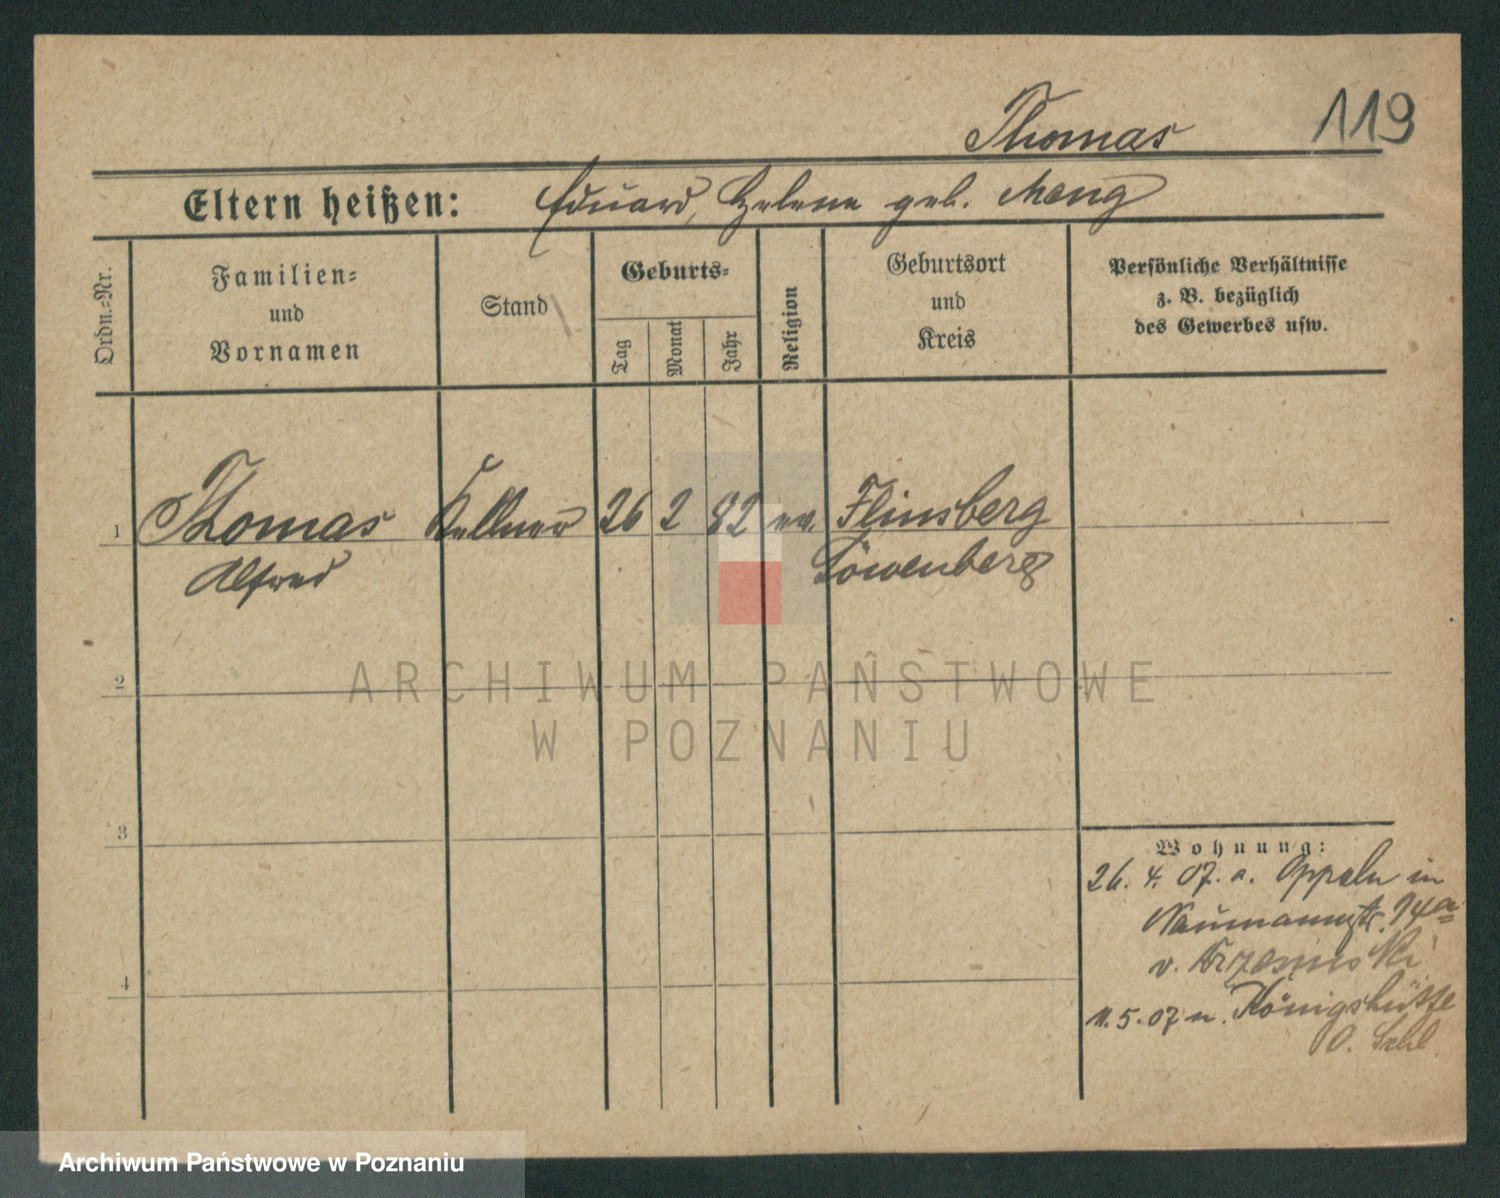 Thomas
119
Eltern heißen: Eduard, Helene geb. Meng
Ordn.=Nr.
Familien=
und
Vornamen
Stand
Geburts=
Tag
Monat
Jahr
Religion
Geburtsort
und
Kreis
Persönliche Verhältnisse
z. B. bezüglich
des Gewerbes usw.
1 Thomas Kellner 26 2 82 ev. Flinsberg
Alfred Löwenberg
2
ARCHIWUM PAŃSTWOWE
W POZNANIU
3
4
Wohnung:
26. 4. 07. a. Oppeln in
Naumannstr. 14a
v.
11. 5. 07 n. Königshütte
O. Schl.
Archiwum Państwowe w Poznaniu